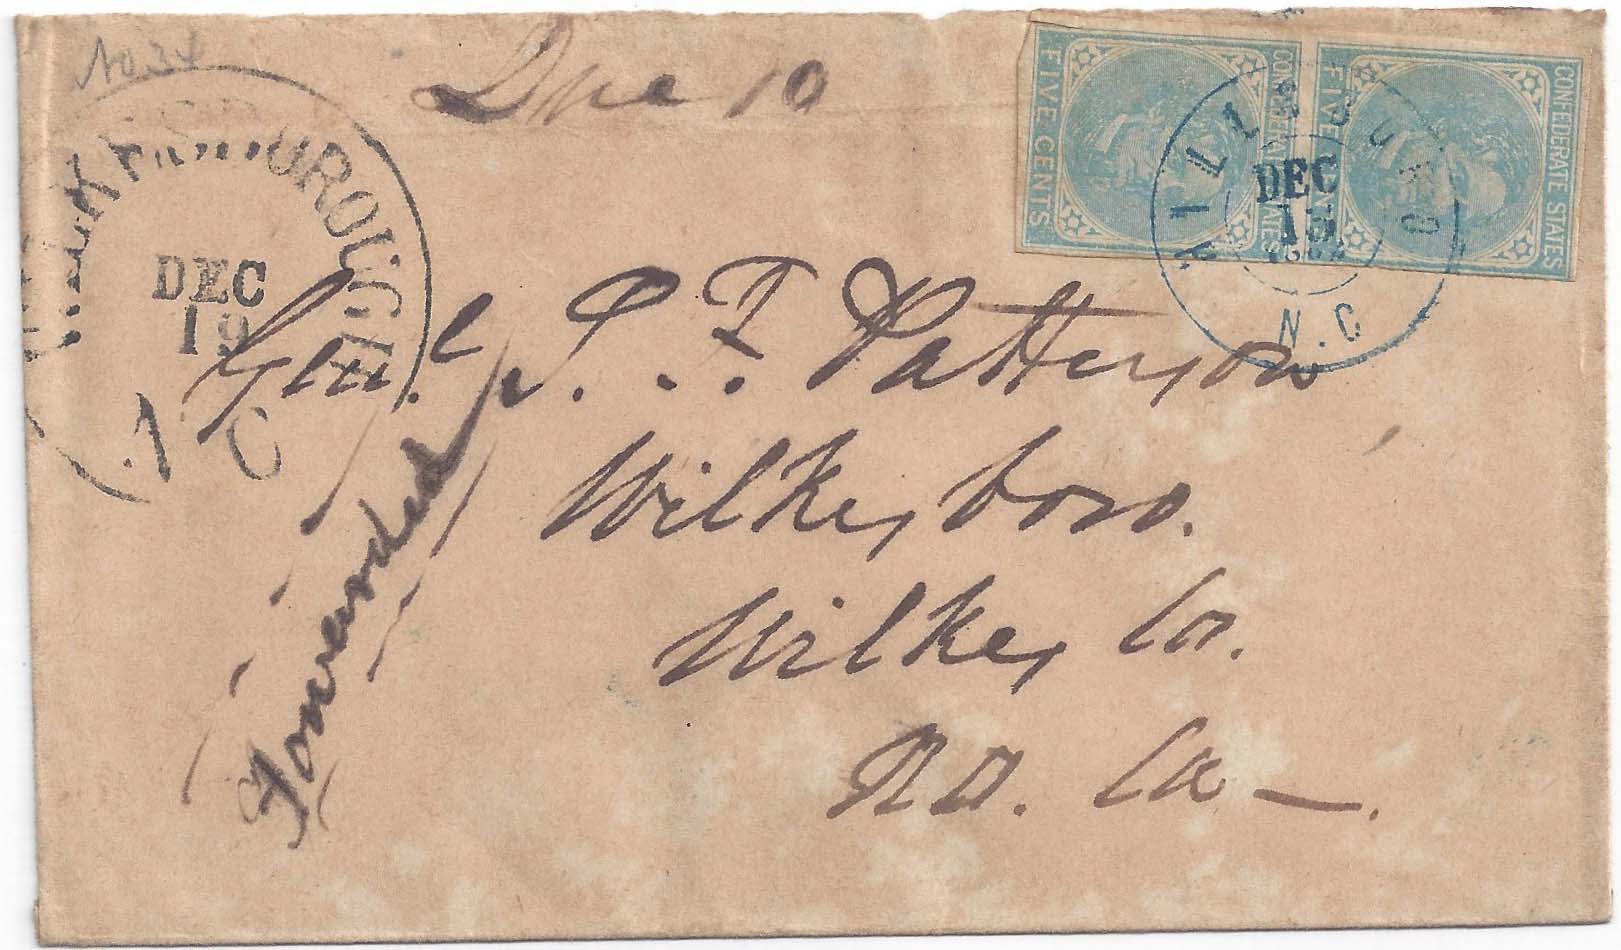 No 34
Due 10
FIVE CENTS
CONFEDERATE STATES
FIVE CENTS
CONFEDERATE STATES
HILLSBORO
DEC
15
N.C
UROUGH
DEC
19
C
Genl. S. F. Patterson
Wilkesboro.
Wilkes Co.
No. Ca —.
Forwarded